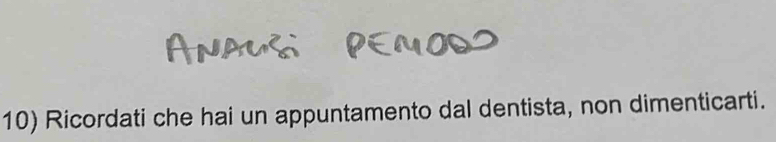 ANALISI PERIODO
10) Ricordati che hai un appuntamento dal dentista, non dimenticarti.